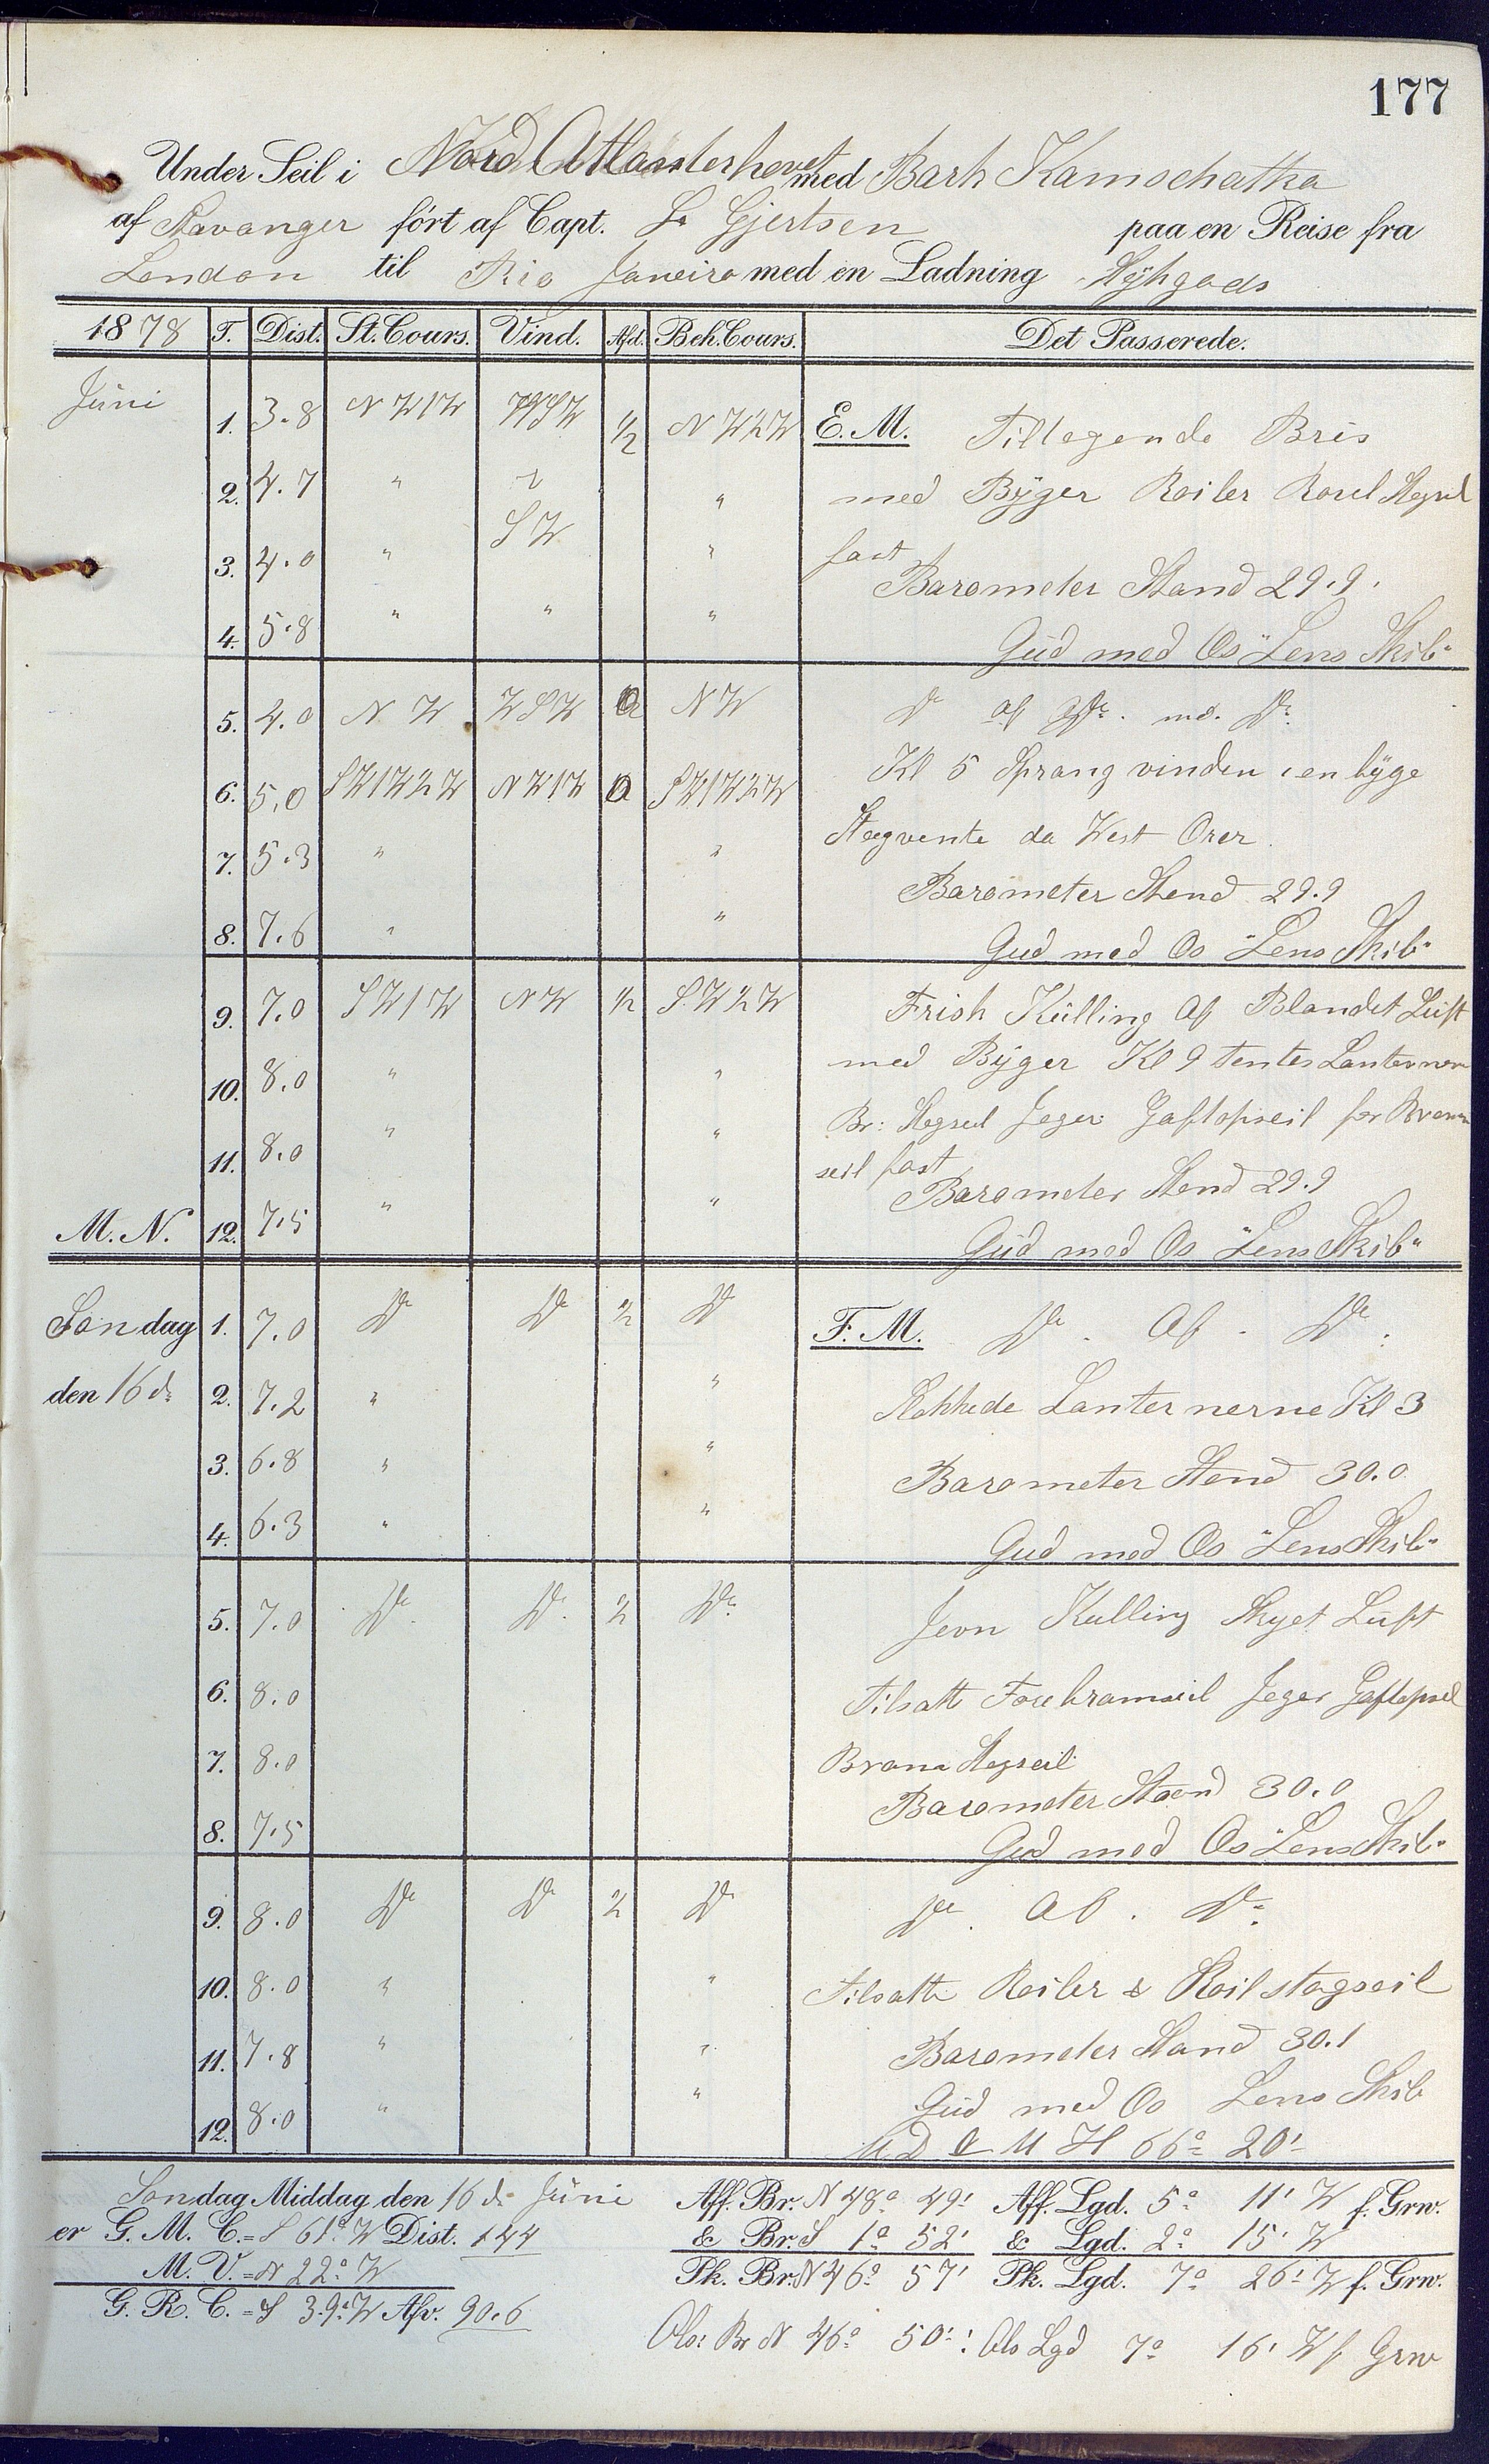 177
Under Seil i Nord Atlanterhavet med Bark Kamschatka
af Stavanger ført af Capt. L. Gjertsen paa en Reise fra
London til Rio Janeiro med en Ladning Stÿkgods
1878 T. Dist. St. Cours. Vind. Afd. Beh. Cours. Det Passerede.
Jüni
1. 3.8 NW1W WSW 1/2 NW2W E. M. Tiltagende Bris
2. 4.7 " " " med Bÿger Roiler Roiel Stagseil
SW
3. 4.0 " " fast
Barometer Stand 29.9.
4. 5.8 " " " Güd med Os "Lens Skib"
5. 4.0 NW WSW 0 NW Do af Do. md. Do.
6. 5.0 SW1W2W NW1W 0 SW1W2W Kl 5 Sprang vinden i en bÿge
7. 5.3 " " Stagvente da West Over
Barometer Stand 29.9
8. 7.6 " " Gud med Os "Lens Skib"
9. 7.0 SW1W NW 1/2 SW2W Frisk Külling af Blandet Lüft
10. 8.0 " " med Bÿger Kl 9 tentes Lanternerne
11. 8.0 " " Br: Stagseil Jager Gaftopseil for Bram
seil fast
Barometer Stand 29.9
M. N. 12. 7.5 " " Güd med Os "Lens Skib"
Søndag 1. 7.0 Do Do 1/2 Do F. M. Do. Af. Do.
den 16 d: 2. 7.2 " " Slokkede Lanternerne Kl 3
3. 6.8 " " Barometer Stand 30.0
4. 6.3 " " Gud med Os "Lens Skib"
5. 7.0 Do. Do. 1/2 Do. Jevn Kulling Skyet Luft
6. 8.0 Tilsatte Forebramseil Jager Gaftopseil
7. 8.0 Bram Stagseil
Barometer Stand 30.0
8. 7.5 Gud med Os "Lens Skib"
9. 8.0 Do Do 1/2 Do Do. Af. Do.
10. 8.0 " " Tilsatte Roiler & Roilstagseil
11. 7.8 " " Barometer Stand 30.1
12. 8.0 " " Güd med Os Lens Skib
M H 66° 20'
Søndag Middag den 16 d: Jüni Aff. Br. N 48° 49' Aff. Lgd. 5° 11' W f. Grw.
er G. M. C. = S 61° W Dist. 144 & Br. S 1° 52' & Lgd. 2° 15' W
M. V. = N 22° W Pk. Br. N 46° 57' Pk. Lgd. 7° 26' W f. Grw.
G. R. C. = S 39° W Afv. 90.6
Obs: Br N 46° 50': Obs Lgd 7° 16' W f Grw